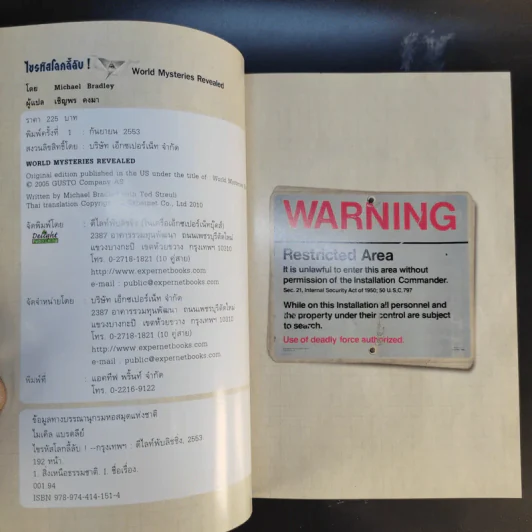 ไขรหัสโลกลี้ลับ !
World Mysteries Revealed
โดย Michael Bradley
ผู้แปล เชิญพร คงมา
ราคา 225 บาท
พิมพ์ครั้งที่ 1 กันยายน 2553
สงวนลิขสิทธิ์โดย : บริษัท เอ็กซเปอร์เน็ท จำกัด
WORLD MYSTERIES REVEALED
Original edition published in the US under the title of : World Mysteries
© 2005 GUSTO Company AS
Written by Michael Bradley Tod Streub
Thai translation Copyright Expernet Co., Ltd 2010
จัดพิมพ์โดย : ดีไลท์พับลิชชิง (ในเครือเอ็กซเปอร์เน็ทบุ๊คส์)
Delight
2387 อาคารรวมทุนพัฒนา ถนนเพชรบุรีตัดใหม่
แขวงบางกะปิ เขตห้วยขวาง กรุงเทพฯ 10310
โทร. 0-2718-1821 (10 คู่สาย)
http://www.expernetbooks.com
e-mail : public@expernetbooks.com
จัดจำหน่ายโดย : บริษัท เอ็กซเปอร์เน็ท จำกัด
2387 อาคารรวมทุนพัฒนา ถนนเพชรบุรีตัดใหม่
แขวงบางกะปิ เขตห้วยขวาง กรุงเทพฯ 10310
โทร. 0-2718-1821 (10 คู่สาย)
http://www.expernetbooks.com
e-mail : public@expernetbooks.com
พิมพ์ที่ : แอคทีฟ พริ้นท์ จำกัด
โทร. 0-2216-9122
ข้อมูลทางบรรณานุกรมหอสมุดแห่งชาติ
ไมเคิล แบรดลีย์
ไขรหัสโลกลี้ลับ ! --กรุงเทพฯ : ดีไลท์พับลิชชิง, 2553
192 หน้า.
1. สิ่งเหนือธรรมชาติ. I. ชื่อเรื่อง.
001.94
ISBN 978-974-414-151-4
WARNING
Restricted Area
It is unlawful to enter this area without
permission of the Installation Commander.
Sec. 21, Internal Security Act of 1950; 50 U.S.C. 797
While on this Installation all personnel and
the property under their control are subject
to search.
Use of deadly force authorized.